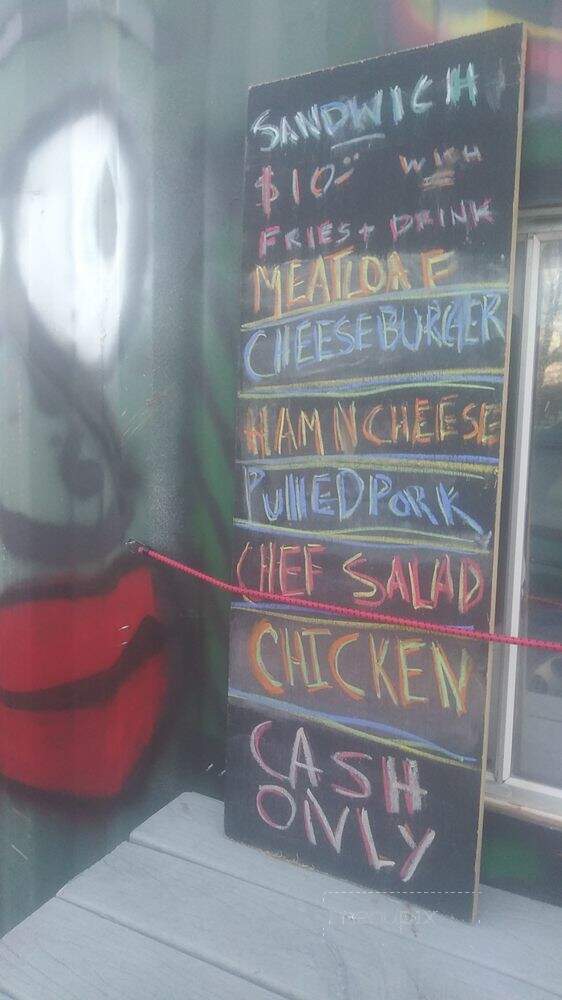 SANDWICH
$10 WITH
FRIES + DRINK
MEATLOAF
CHEESEBURGER
HAM N CHEESE
PULLED PORK
CHEF SALAD
CHICKEN
CASH
ONLY
menupix